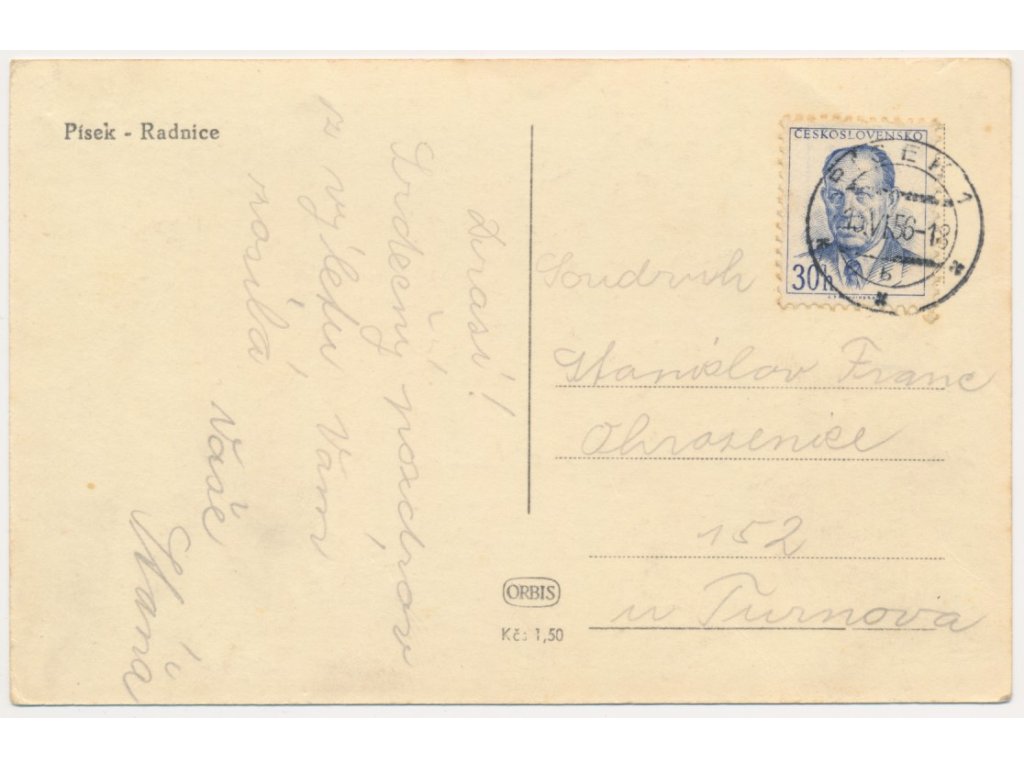 Písek - Radnice
Drasí!
Srdečný pozdrav
z výletu Vám
posílá
Vaše
Máňa
ČESKOSLOVENSKO
30h
PÍSEK 1
13.VI.56-18
b
Soudruh
Stanislav Franc
Ohrazenice
152
u Turnova
ORBIS
Kčs 1,50